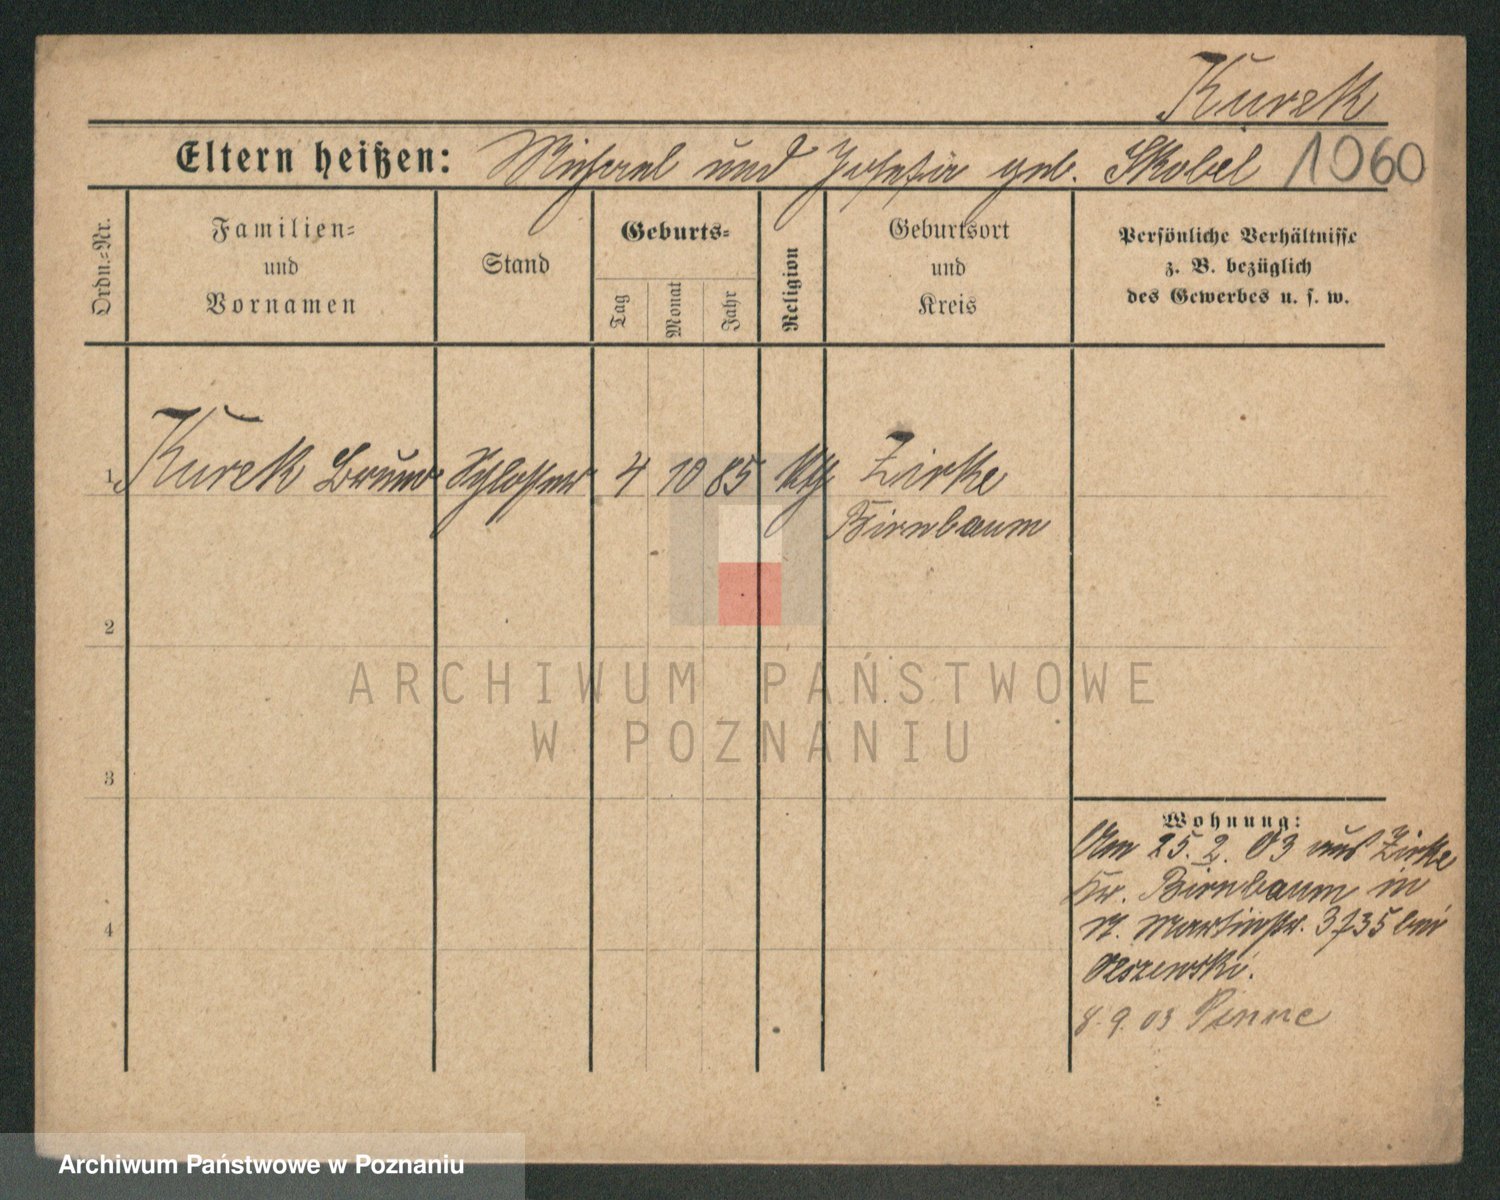 Kurek
Eltern heißen: Michael und Josefa geb. Skobel 1060
Ordn.-Nr.
Familien-
und
Vornamen
Stand
Geburts-
Tag
Monat
Jahr
Religion
Geburtsort
und
Kreis
Persönliche Verhältnisse
z. B. bezüglich
des Gewerbes u. s. w.
1 Kurek Bruno Schlosser 4 10 85 kth Zirke
Birnbaum
2
3
4
Wohnung:
Am 25. 2. 03 aus Zirke
Kr. Birnbaum in
St. Martinstr. bei
8. 9. 03 Pinne
ARCHIWUM PAŃSTWOWE
W POZNANIU
Archiwum Państwowe w Poznaniu